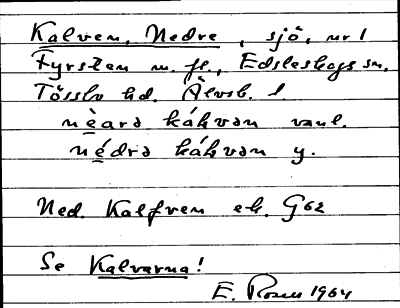 Kalven, Nedre, sjö, nr 1
Fyrsten m. fl., Edsleskogs sn,
Tössbo hd. Älvsb. l.
nèarə káhvən vanl.
nédrə káhvən y.
Ned. Kalfven ek. G62
Se Kalvarna!
E. Rosen 1964